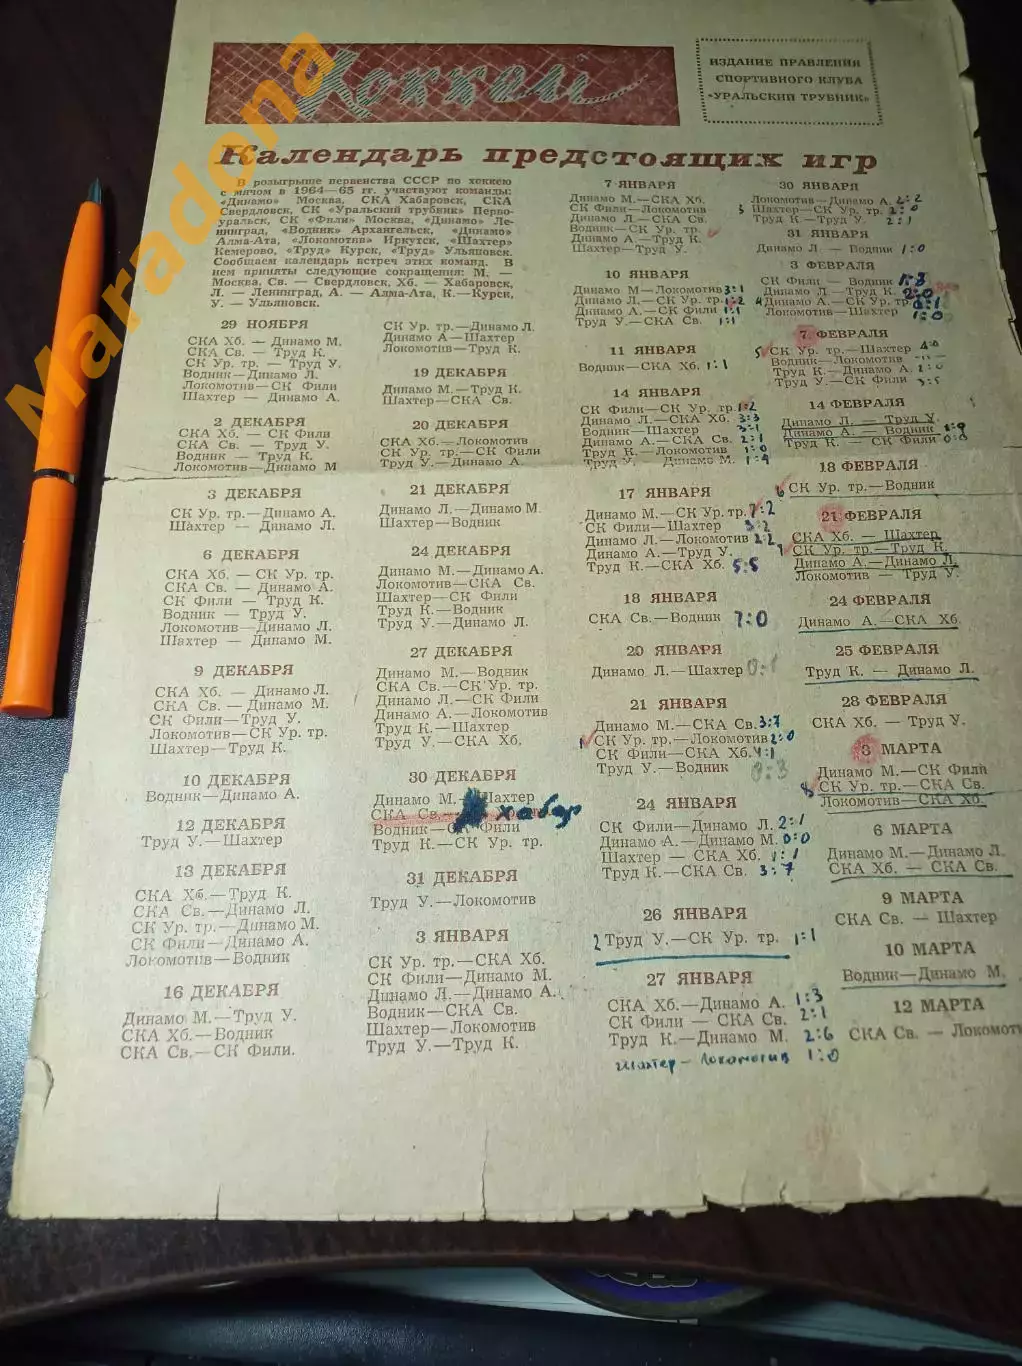 Хоккей
ИЗДАНИЕ ПРАВЛЕНИЯ
СПОРТИВНОГО КЛУБА
«УРАЛЬСКИЙ ТРУБНИК»
Календарь предстоящих игр
В розыгрыше первенства СССР по хоккею
с мячом в 1964—65 гг. участвуют команды:
«Динамо» Москва, СКА Хабаровск, СКА
Свердловск, СК «Уральский трубник» Перво-
уральск, СК «Фили» Москва, «Динамо» Ле-
нинград, «Водник» Архангельск, «Динамо»
Алма-Ата, «Локомотив» Иркутск, «Шахтер»
Кемерово, «Труд» Курск, «Труд» Ульяновск.
Сообщаем календарь встреч этих команд. В
нем приняты следующие сокращения: М. —
Москва, Св. — Свердловск, Хб. — Хабаровск,
Л. — Ленинград, А. — Алма-Ата, К.—Курск,
У. — Ульяновск.
29 НОЯБРЯ
СКА Хб. — Динамо М.
СКА Св. — Труд К.
СК Ур. тр. — Труд У.
Водник—Динамо Л.
Локомотив—СК Фили
Шахтер — Динамо А.
2 ДЕКАБРЯ
СКА Хб. — СК Фили
СКА Св. — Труд У.
Водник — Труд К.
Локомотив—Динамо М
3 ДЕКАБРЯ
СК Ур. тр.—Динамо А.
Шахтер — Динамо Л.
6 ДЕКАБРЯ
СКА Хб. — СК Ур. тр.
СКА Св. — Динамо А.
СК Фили — Труд К.
Водник — Труд У.
Локомотив—Динамо Л.
Шахтер — Динамо М.
9 ДЕКАБРЯ
СКА Хб. — Динамо Л.
СКА Св. — Динамо М.
СК Фили—Труд У.
Локомотив—СК Ур. тр.
Шахтер—Труд К.
10 ДЕКАБРЯ
Водник—Динамо А.
12 ДЕКАБРЯ
Труд У.—Шахтер
13 ДЕКАБРЯ
СКА Хб.—Труд К.
СКА Св.—Динамо Л.
СК Ур. тр.—Динамо М.
СК Фили—Динамо А.
Локомотив—Водник
16 ДЕКАБРЯ
Динамо М.—Труд У.
СКА Хб.—Водник
СКА Св.—СК Фили.
СК Ур. тр.—Динамо Л.
Динамо А—Шахтер
Локомотив—Труд К.
19 ДЕКАБРЯ
Динамо М.—Труд К.
Шахтер—СКА Св.
20 ДЕКАБРЯ
СКА Хб.—Локомотив
СК Ур. тр.—СК Фили
Труд У.—Динамо А.
21 ДЕКАБРЯ
Динамо Л.—Динамо М.
Шахтер—Водник
24 ДЕКАБРЯ
Динамо М.—Динамо А.
Локомотив—СКА Св.
Шахтер—СК Фили
Труд К.—Водник
Труд У.—Динамо Л.
27 ДЕКАБРЯ
Динамо М.—Водник
СКА Св.—СК Ур. тр.
Динамо Л.—СК Фили
Динамо А.—Локомотив
Труд К.—Шахтер
Труд У.—СКА Хб.
30 ДЕКАБРЯ
Динамо М.—Шахтер
СКА Св.— хабар
Водник—СК Фили
Труд К.—СК Ур. тр.
31 ДЕКАБРЯ
Труд У.—Локомотив
3 ЯНВАРЯ
СК Ур. тр.—СКА Хб.
СК Фили—Динамо М.
Динамо Л.—Динамо А.
Водник—СКА Св.
Шахтер—Локомотив
Труд У.—Труд К.
7 ЯНВАРЯ
Динамо М.—СКА Хб.
СК Фили—Локомотив
Динамо Л.—СКА Св.
Водник—СК Ур. тр.
Динамо А—Труд К.
Шахтер—Труд У.
10 ЯНВАРЯ
Динамо М—Локомотив 3:1
Динамо Л.—СК Ур. тр. 1:2
Динамо А.—СК Фили 1:1
Труд У.—СКА Св. 1:1
11 ЯНВАРЯ
Водник—СКА Хб. 1:1
14 ЯНВАРЯ
СК Фили—СК Ур. тр. 1:2
Динамо Л.—СКА Хб. 3:3
Водник—Шахтер 3:1
Динамо А.—СКА Св. 2:1
Труд К.—Локомотив 1:0
Труд У. — Динамо М. 1:9
17 ЯНВАРЯ
Динамо М.—СК Ур. тр. 7:2
СК Фили—Шахтер 3:2
Динамо Л.—Локомотив 2:2
Динамо А.—Труд У.
Труд К.—СКА Хб. 5:5
18 ЯНВАРЯ
СКА Св.—Водник 7:0
20 ЯНВАРЯ
Динамо Л.—Шахтер 0:1
21 ЯНВАРЯ
Динамо М.—СКА Св. 3:7
1 СК Ур. тр.—Локомотив 2:0
СК Фили—СКА Хб. 4:1
Труд У.—Водник 0:3
24 ЯНВАРЯ
СК Фили—Динамо Л. 2:1
Динамо А.—Динамо М. 0:0
Шахтер — СКА Хб. 1:1
Труд К.—СКА Св. 3:7
26 ЯНВАРЯ
2 Труд У.—СК Ур. тр. 1:1
27 ЯНВАРЯ
СКА Хб.—Динамо А. 1:3
СК Фили — СКА Св. 2:1
Труд К.—Динамо М. 2:6
Шахтер — Локомотив 1:0
30 ЯНВАРЯ
Локомотив—Динамо А. 2:2
3 Шахтер—СК Ур. тр. 2:0
Труд К—Труд У. 2:1
31 ЯНВАРЯ
Динамо Л. — Водник 1:0
3 ФЕВРАЛЯ
СК Фили — Водник 1:3
Динамо Л.—Труд К. 2:0
4 Динамо А.—СК Ур. тр
Локомотив—Шахтер 1:0
7 ФЕВРАЛЯ
5 СК Ур. тр.—Шахтер 4:0
Водник—Локомотив
Труд К.—Динамо А. 2:0
Труд У.—СК Фили 3:5
14 ФЕВРАЛЯ
Динамо Л. — Труд У.
Динамо А. — Водник 1:9
Труд К. — СК Фили 0:8
18 ФЕВРАЛЯ
6 СК Ур. тр.—Водник
21 ФЕВРАЛЯ
СКА Хб. — Шахтер
7 СК Ур. тр.—Труд К.
Динамо А.—Динамо Л.
Локомотив — Труд У.
24 ФЕВРАЛЯ
Динамо А.—СКА Хб.
25 ФЕВРАЛЯ
Труд К. — Динамо Л.
28 ФЕВРАЛЯ
СКА Хб. — Труд У.
3 МАРТА
Динамо М.—СК Фили
8 СК Ур. тр.—СКА Св.
Локомотив—СКА Хб.
6 МАРТА
Динамо М.—Динамо Л
СКА Хб. — СКА Св.
9 МАРТА
СКА Св. — Шахтер
10 МАРТА
Водник—Динамо М.
12 МАРТА
СКА Св. — Локомоти
Maradona